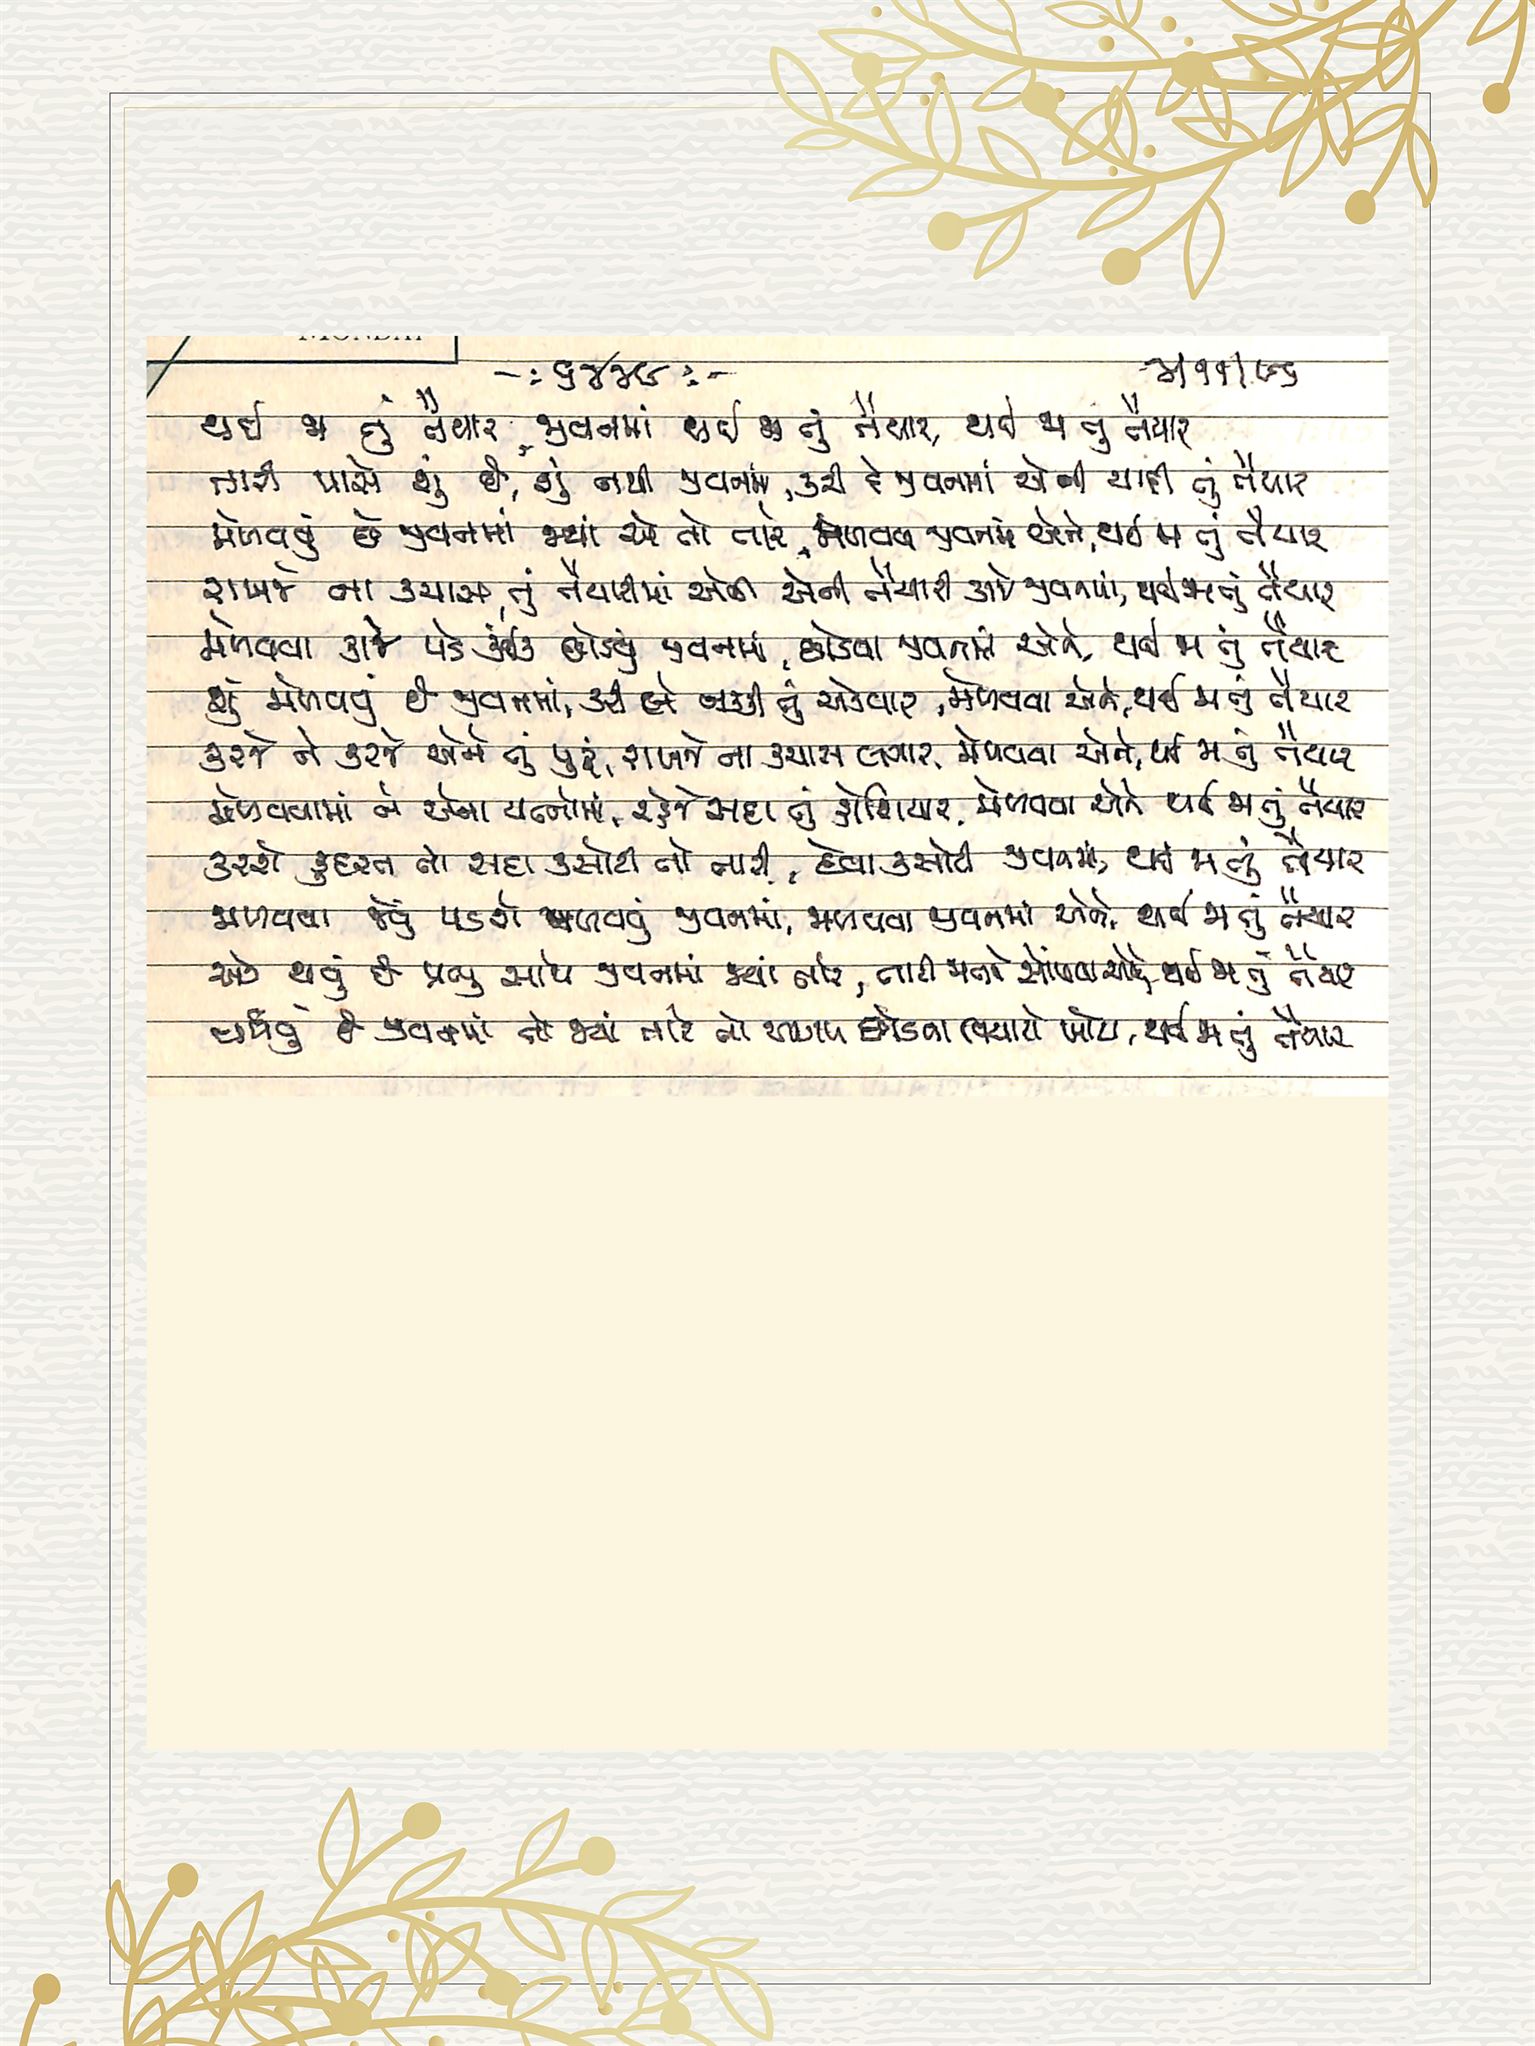 MONDAY
-: ૬૪૪૯ :- ૪|૧૧|૯૬
થઈ જા તું તૈયાર, જીવનમાં થઈ જા તું તૈયાર, થઈ જા તું તૈયાર
તારી પાસે શું છે, શું નથી જીવનમાં, કરી દે જીવનમાં એની યાદી તું તૈયાર
મેળવવું છે જીવનમાં જ્યાં એ તો તારે, મેળવવા જીવનમાં એને, થઈ જા તું તૈયાર
રાખજે ના કચાશ તું તૈયારીમાં એની એની તૈયારી કાજે જીવનમાં, થઈ જા તું તૈયાર
મેળવવા કાજે પડે કંઈક છોડવું જીવનમાં, છોડવા જીવનમાં એને, થઈ જા તું તૈયાર
શું મેળવવું છે જીવનમાં, કરી લે નક્કી તું એકવાર, મેળવવા એને, થઈ જા તું તૈયાર
કરજે ને કરજે એને તું પુરું, રાખજે ના કચાશ લગાર, મેળવવા એને, થઈ જા તું તૈયાર
મેળવવામાં ને એના યત્નોમાં, રહેજે સદા તું હોશિયાર, મેળવવા એને થઈ જા તું તૈયાર
કરશે કુદરત તો સદા કસોટી તો તારી, દેવા કસોટી જીવનમાં, થઈ જા તું તૈયાર
મેળવવા જેવું પડશે મેળવવું જીવનમાં, મેળવવા જીવનમાં એને, થઈ જા તું તૈયાર
એક થવું છે પ્રભુ સાથે જીવનમાં જ્યાં તારે, તારા મનને સોંપવા એને, થઈ જા તું તૈયાર
છે જીવનમાં તો જ્યાં તારે તો છોડવા વિચારો ખોટા, થઈ જા તું તૈયાર